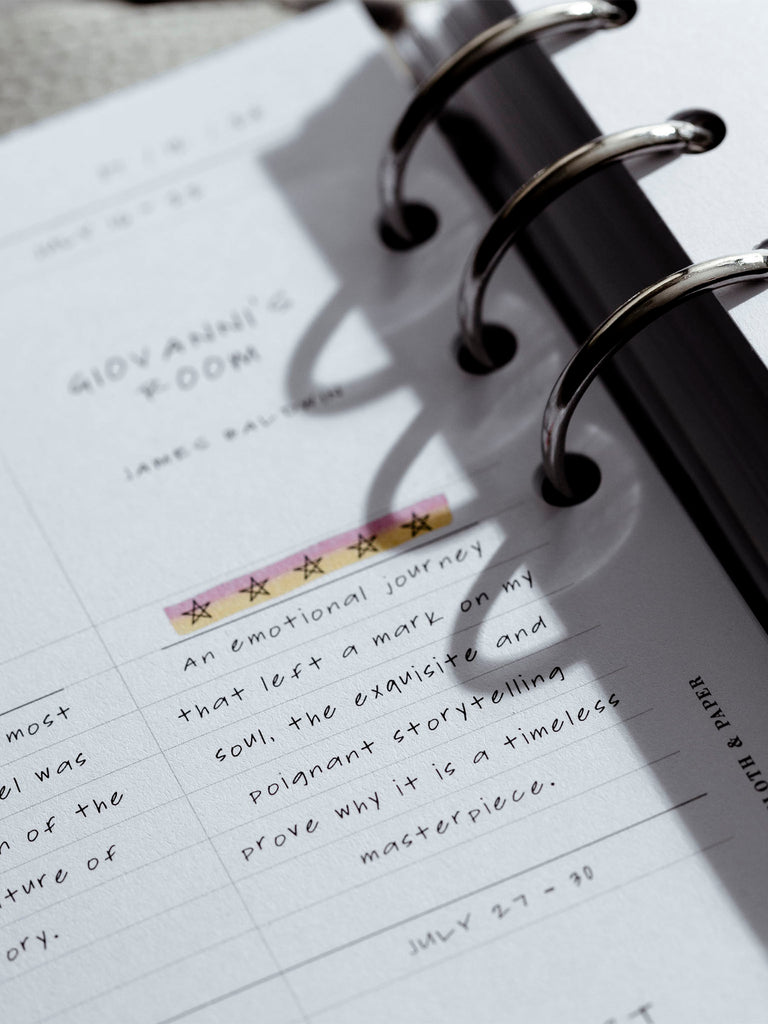 GIOVANNI'S
ROOM
JAMES BALDWIN
An emotional journey
that left a mark on my
soul, the exquisite and
poignant storytelling
prove why it is a timeless
masterpiece.
JULY 27 - 30
most
was
of the
of
CLOTH & PAPER